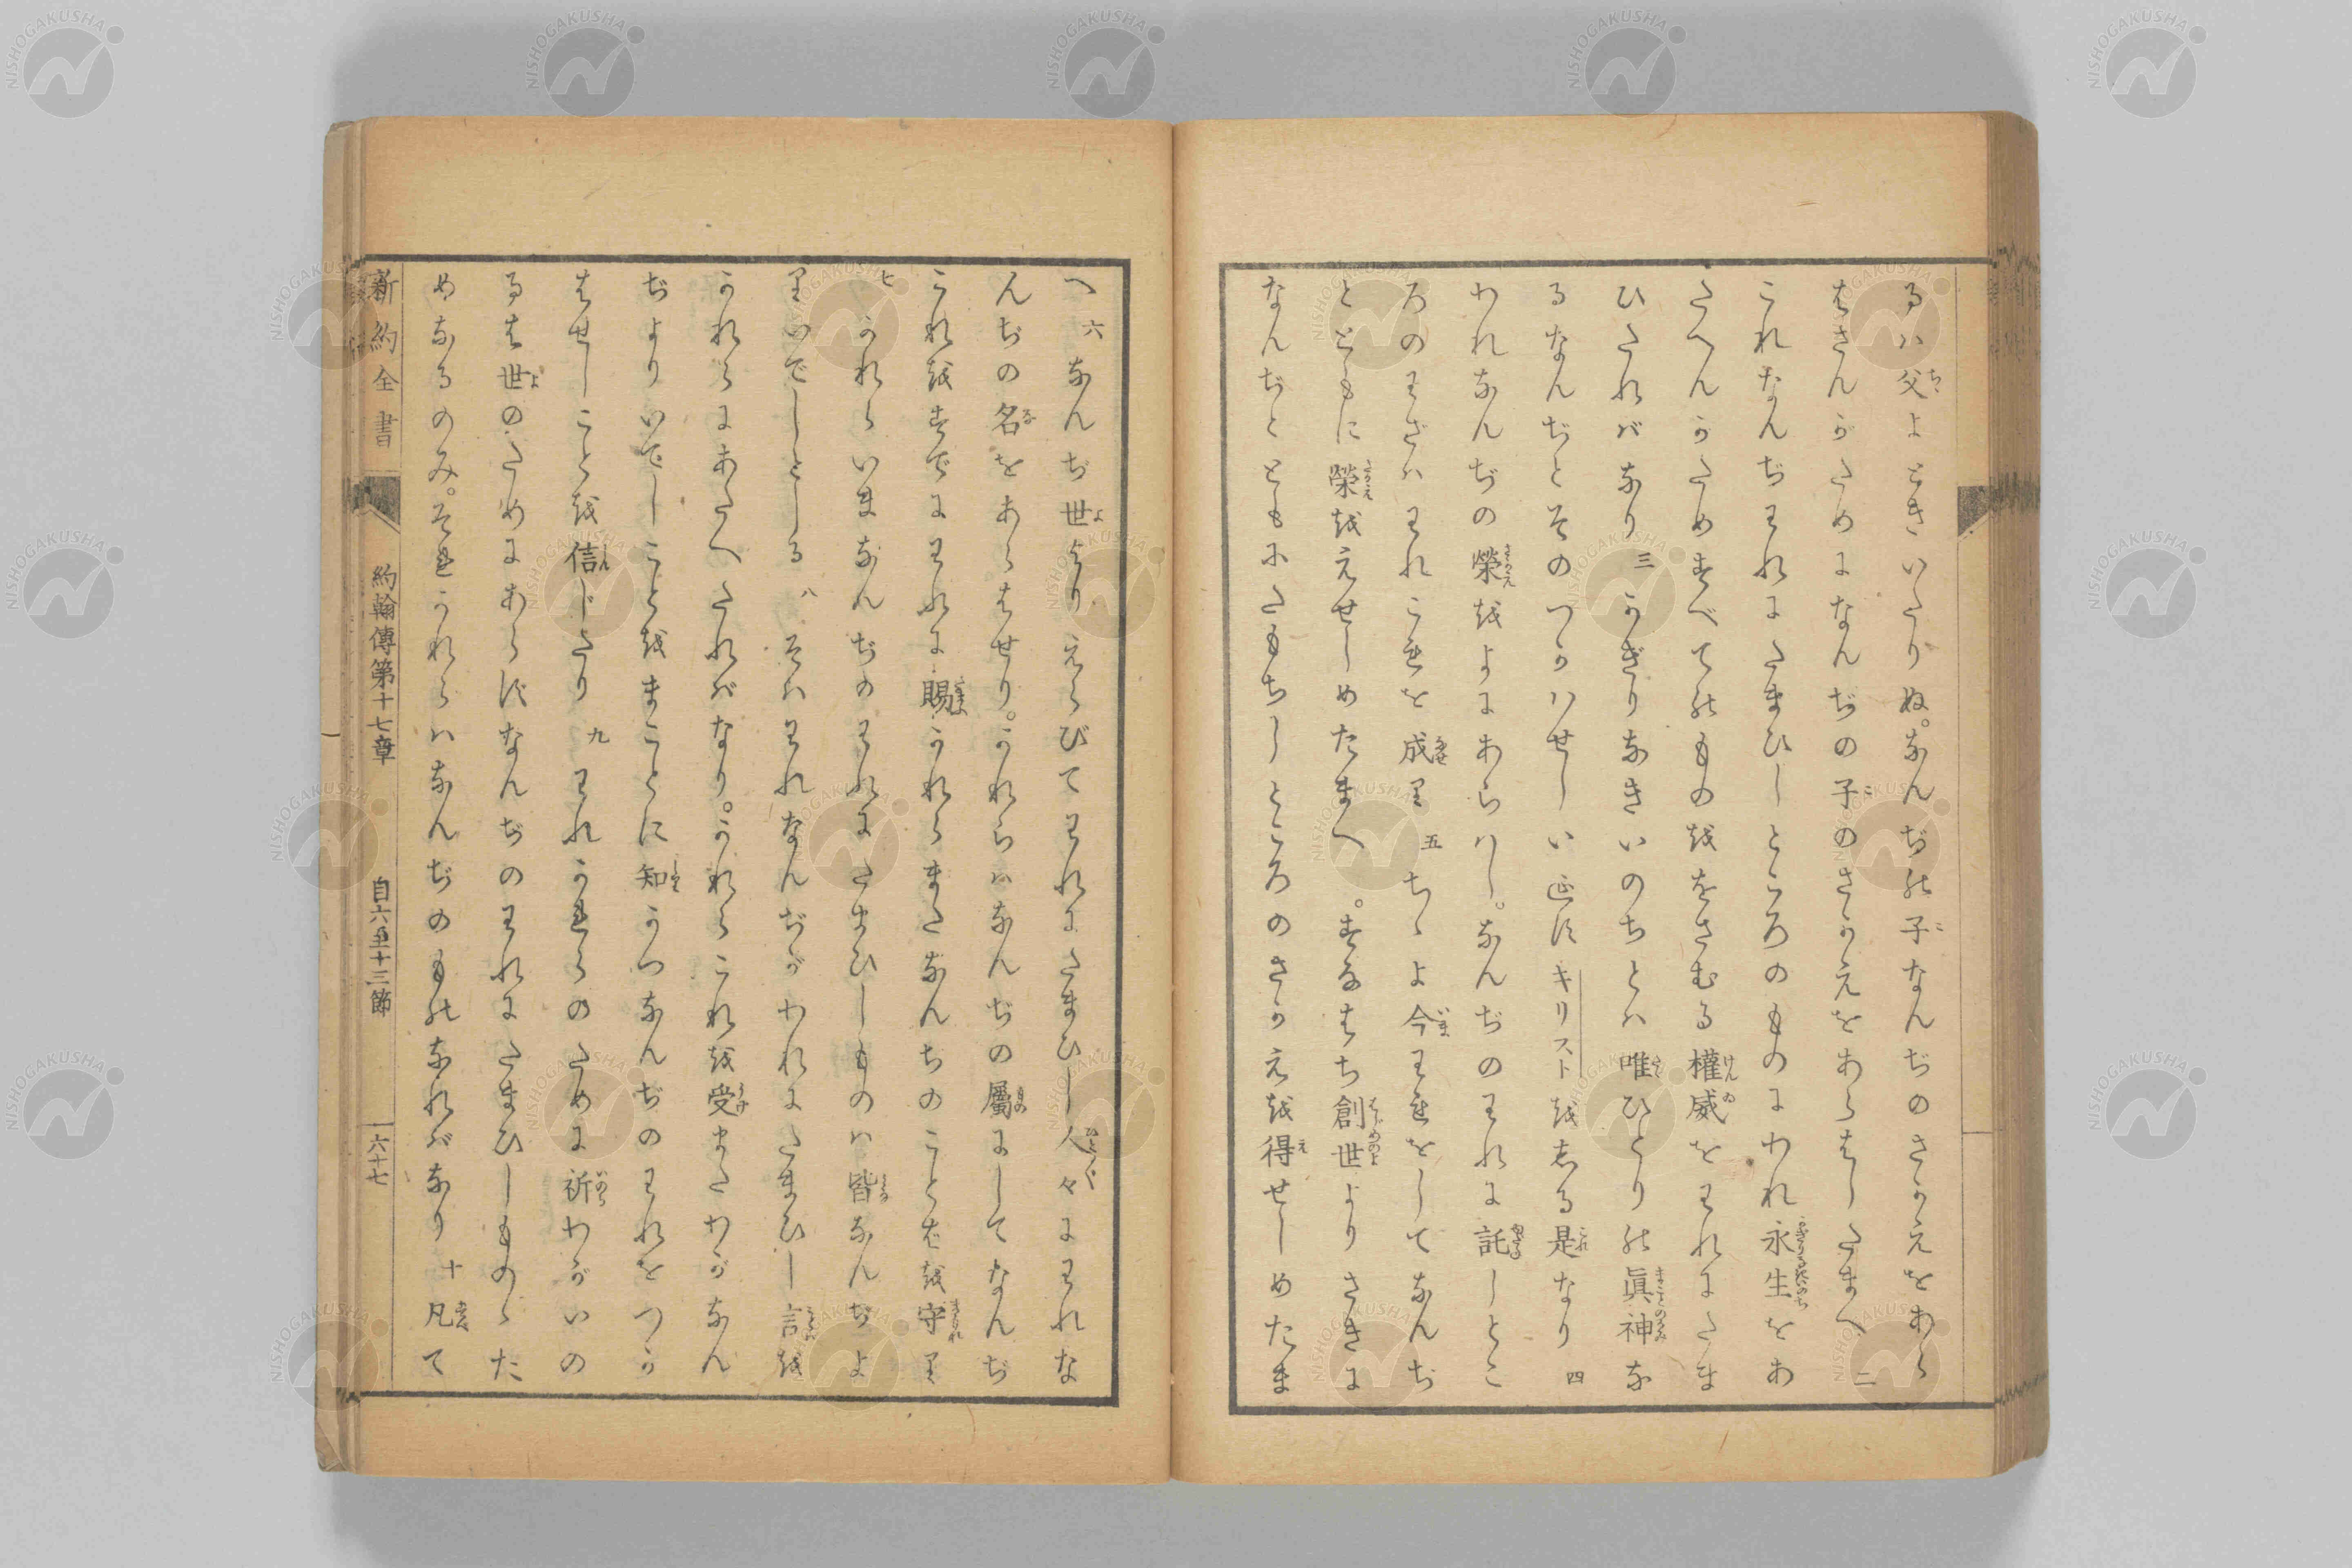 るハ父よときいたりぬ。なんぢの子なんぢのさかえをあら
はさんがためになんぢの子のさかえをあらはしたまへ 二
これなんぢわれにたまひしところのものにわれ永生をあ
たへんがためすべてのものをさむる權威をわれにたま
ひたれバなり 三 かぎりなきいのちとハ唯ひとりの眞神な
るなんぢとそのつかハせしいエスキリストをしる是なり 四
われなんぢの榮をよにあらハし。なんぢのわれに託しとこ
ろのわざハわれこれを成り 五 ちゝよ今われをしてなんぢ
とともに榮をえせしめたまへ。すなはち創世よりさきに
なんぢとともにたもちしところのさかえを得せしめたま
へ 六 なんぢ世よりえらびてわれにたまひし人々にわれな
んぢの名をあらはせり。かれらハなんぢの屬にしてなんぢ
これをすでにわれに賜かれらまたなんぢのことばを守り
七 かれらいまなんぢのわれにたまひしものハ皆なんぢよ
りいでしとしる 八 そハわれなんぢがわれにたまひし言を
かれらにあたへたれバなり。かれらこれを受またわがなん
ぢよりいでしことをまことに知かつなんぢのわれをつか
はせしことを信じたり 九 われかれらのためにに祈わがいの
るは世のためにあらずなんぢのわれにたまひしものゝた
めなるのみ。そはかれらハなんぢのものなれバなり 十 凡て
新約全書 約翰傳第十七章 自六至十三節 六十七
NISHOGAKUSHA